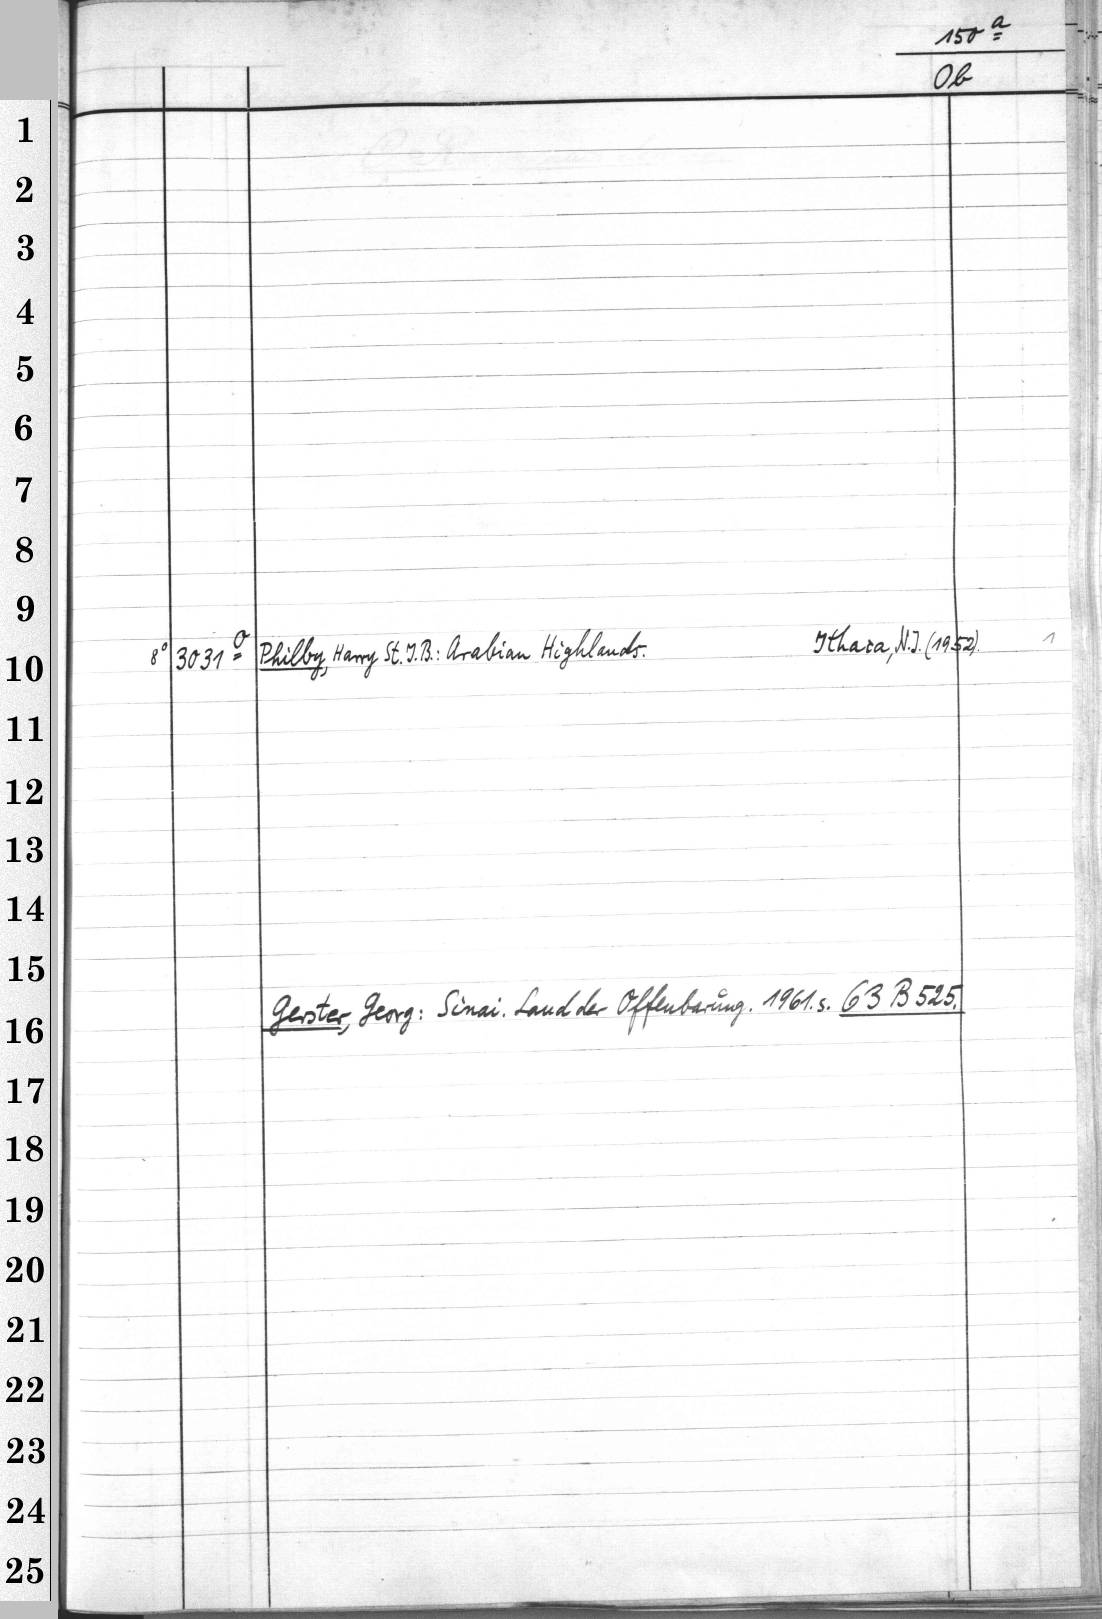 150 a
Ob
1
2
3
4
5
6
7
8
9
8° 3031 o Philby, Harry St. J.B.: Arabian Highlands. Ithaca, N.J. (1952). 1
10
11
12
13
14
15
Gerster, Georg: Sinai. Land der Offenbarung. 1961. s. 63 B 525.
16
17
18
19
20
21
22
23
24
25